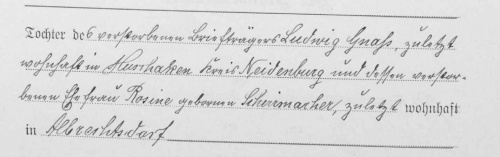 Tochter des verstorbenen Briefträgers Ludwig Gnaß, zuletzt
wohnhaft in Kreis Neidenburg und dessen verstor-
benen Ehefrau Rosine gebornen Schuimacher, zuletzt wohnhaft
in Albrechtsdorf